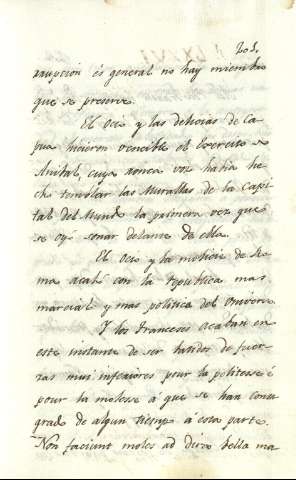 203.
rrupcion és general no hay miembro
que se preserve.
El Ocio y las delicias de Ca
pua hicieron vencible el Exercito de
Anibal, cuya ronca voz habia he
cho temblar las Murallas de la Capi
tal del Mundo la primera vez que
se oyó sonar delante de ella.
El Ocio y la molicie de Ro
ma acabó con la republica mas
marcial y mas politica del Universo.
Y los Franceses acaban en
este instante de ser batidos de fuer
zas mui inferiores pour la politesse é
pour la molesse à que se han consa
grado de algun tiempo á esta parte.
Non faciunt moles ad dira bella ma